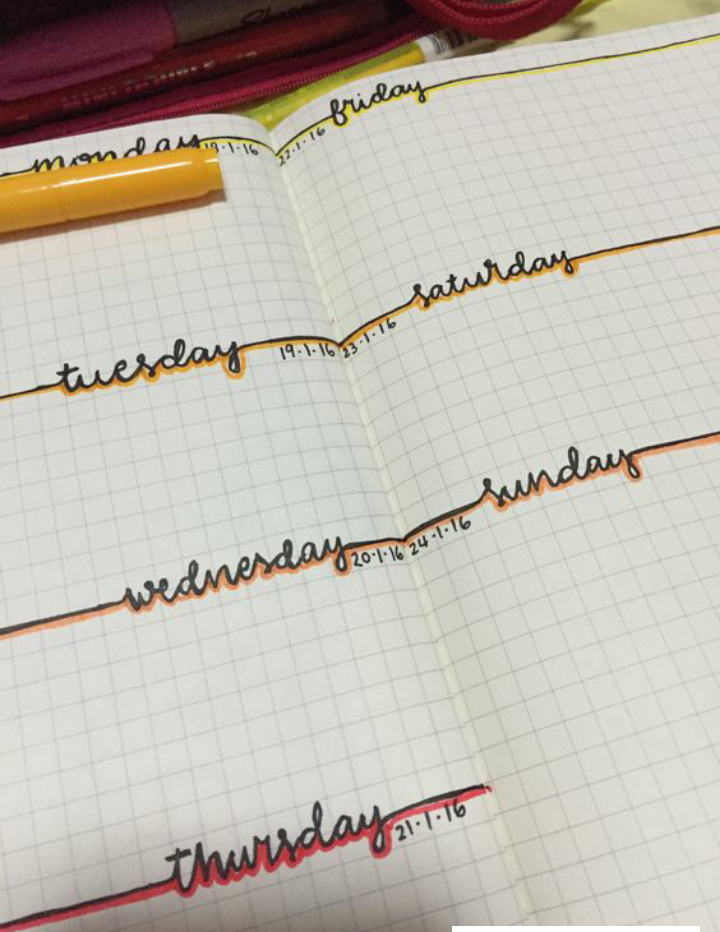 monday
tuesday 19·1·16
wednesday 20·1·16
thursday 21·1·16
friday 22·1·16
saturday 23·1·16
sunday 24·1·16